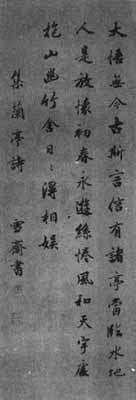 大悟無今古斯言信有諸亭當臨水地
人是放懷初春永遊絲倦風和天宇虛
抱山幽竹舍日〻得相娛
集蘭亭詩
雪齋書